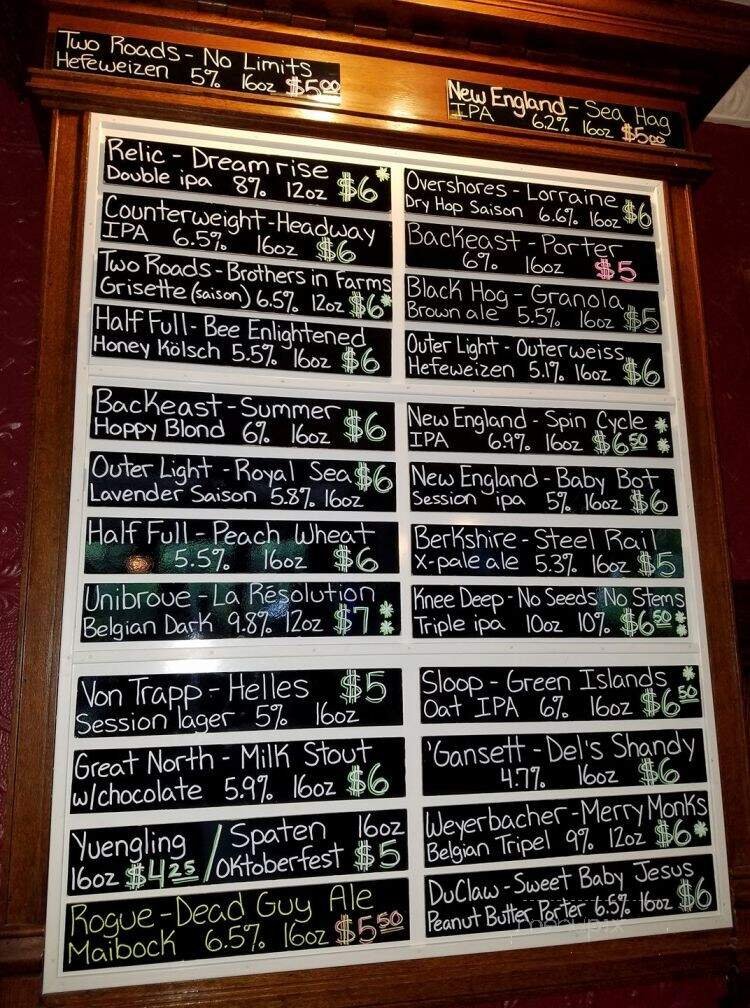 Two Roads - No Limits
Hefeweizen 5% 16oz $5.00
New England - Sea Hag
IPA 6.2% 16oz $5.00
Relic - Dreamrise
Double ipa 8% 12oz $6*
Counterweight - Headway
IPA 6.5% 16oz $6
Two Roads - Brothers in Farms
Grisette (saison) 6.5% 12oz $6*
Half Full - Bee Enlightened
Honey Kölsch 5.5% 16oz $6
Backeast - Summer
Hoppy Blond 6% 16oz $6
Outer Light - Royal Sea $6
Lavender Saison 5.8% 16oz
Half Full - Peach Wheat
5.5% 16oz $6
Unibroue - La Résolution
Belgian Dark 9.8% 12oz $7 **
Von Trapp - Helles $5
Session lager 5% 16oz
Great North - Milk Stout
w/chocolate 5.9% 16oz $6
Yuengling / Spaten 16oz
16oz $4.25 / Oktoberfest $5
Rogue - Dead Guy Ale
Maibock 6.5% 16oz $5.50
Overshores - Lorraine
Dry Hop Saison 6.6% 16oz $6
Backeast - Porter
6% 16oz $5
Black Hog - Granola
Brown ale 5.5% 16oz $5
Outer Light - Outerweiss
Hefeweizen 5.1% 16oz $6
New England - Spin Cycle *
IPA 6.9% 16oz $6.50 *
New England - Baby Bot
Session ipa 5% 16oz $6
Berkshire - Steel Rail
X-pale ale 5.3% 16oz $5
Knee Deep - No Seeds No Stems
Triple ipa 10oz 10% $6.50 **
Sloop - Green Islands *
Oat IPA 6% 16oz $6.50
'Gansett - Del's Shandy
4.7% 16oz $6
Weyerbacher - Merry Monks
Belgian Tripel 9% 12oz $6*
DuClaw - Sweet Baby Jesus
Peanut Butter Porter 6.5% 16oz $6